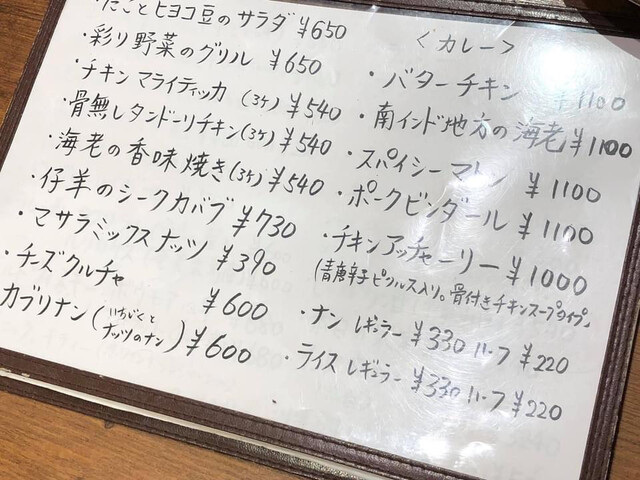 ・たことヒヨコ豆のサラダ ¥650
・彩り野菜のグリル ¥650
・チキン マライティッカ (3ケ) ¥540
・骨無しタンドーリチキン(3ケ) ¥540
・海老の香味焼き(3ケ) ¥540
・仔羊のシークカバブ ¥730
・マサラミックスナッツ ¥390
・チーズクルチャ ¥600
カブリナン(いちじくとナッツのナン) ¥600
〈カレー〉
・バターチキン ¥1100
・南インド地方の海老 ¥1100
・スパイシーマトン ¥1100
・ポークビンダール ¥1100
・チキンアッチャーリー ¥1000
(青唐辛子ピクルス入り。骨付きチキンスープタイプ)
・ナン レギュラー ¥330 ハーフ ¥220
・ライス レギュラー ¥330 ハーフ ¥220